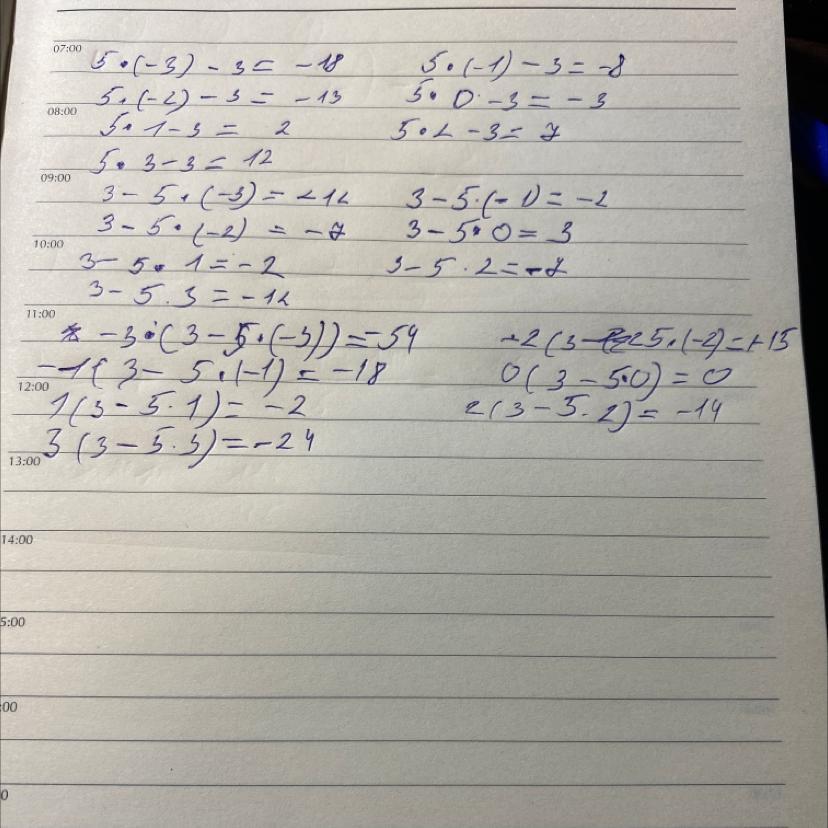 07:00
5·(-3) - 3 = -18 5·(-1) - 3 = -8
5·(-2) - 3 = -13 5·0 - 3 = -3
08:00
5·1 - 3 = 2 5·2 - 3 = 7
5·3 - 3 = 12
09:00
3 - 5·(-3) = -12 3 - 5·(-1) = -2
3 - 5·(-2) = -7 3 - 5·0 = 3
10:00
3 - 5·1 = -2 3 - 5·2 = -7
3 - 5·3 = -12
11:00
-3·(3 - 5·(-3)) = -54 -2(3 - 5·(-2) = +15
-1(3 - 5·(-1) = -18 0(3 - 5·0) = 0
12:00
1(3 - 5·1) = -2 2(3 - 5·2) = -14
3(3 - 5·3) = -24
13:00
14:00
5:00
:00
0